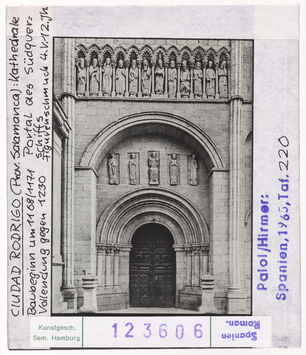 CIUDAD RODRIGO (Prov. Salamanca): Kathedrale
Baubeginn um 1108/1171 Portal des Südquer-
Vollendung gegen 1230 schiffs
Figurenschmuck 4.V.12.Jh
Palol/Hirmer:
Spanien, 1965, Taf. 220
Kunstgesch.
Sem. Hamburg
123606
Spanien
Roman.